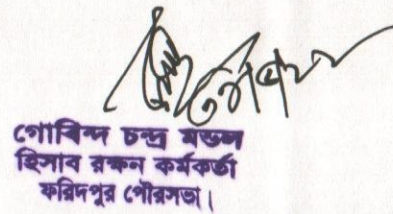 গোবিন্দ চন্দ্র মন্ডল
হিসাব রক্ষন কর্মকর্তা
ফরিদপুর পৌরসভা।